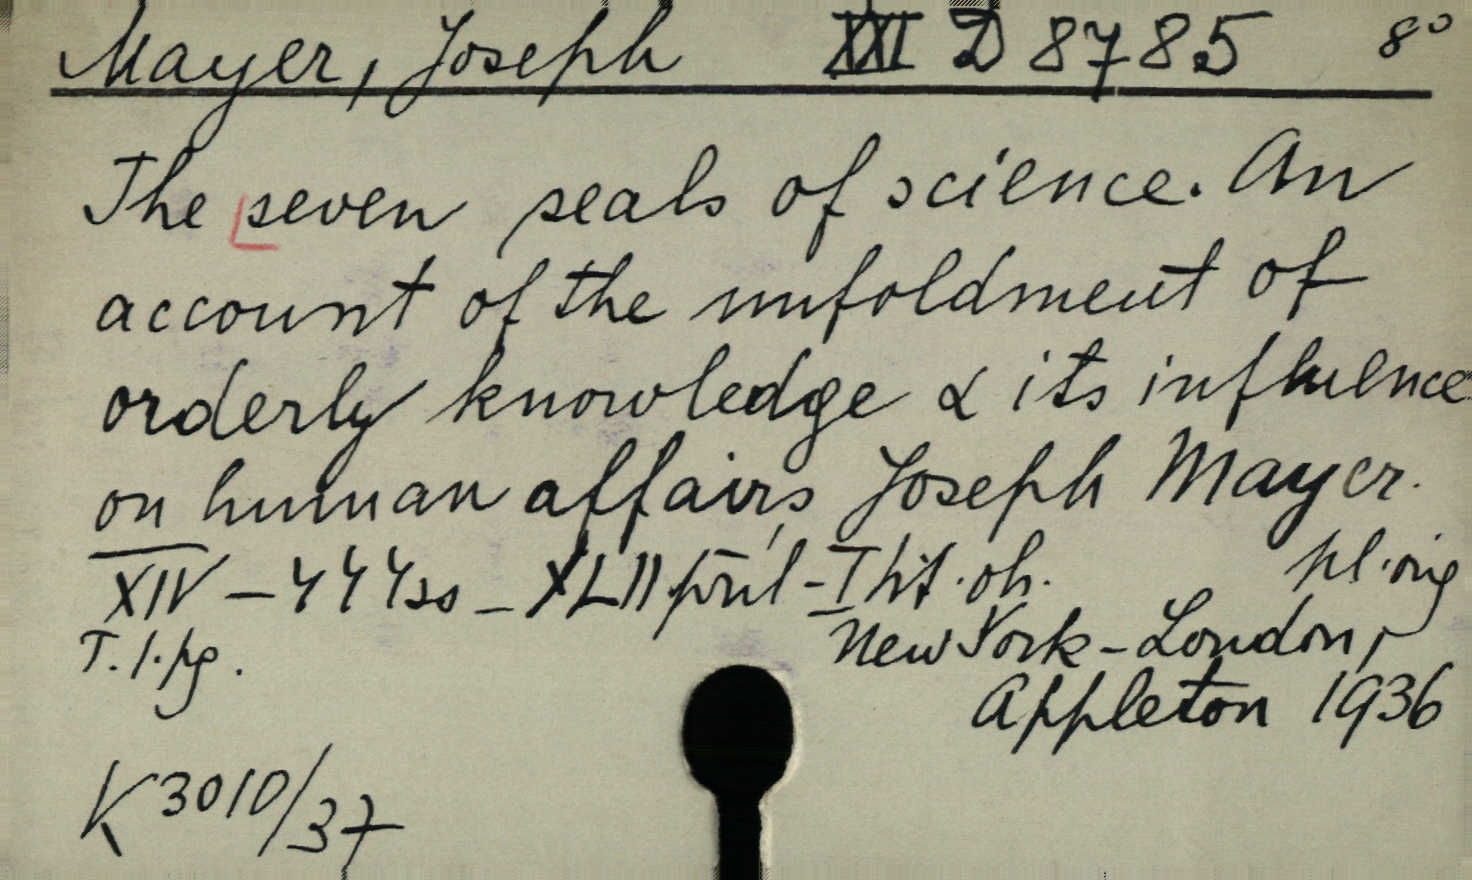 Mayer, Joseph XXI D 8785 8°
The seven seals of science. An
account of the unfoldment of
orderly knowledge & its influence
on human affairs, Joseph Mayer.
XIV – 444 ss – XLII
T. 1. pg. New York – London,
Appleton 1936
K 3010/37